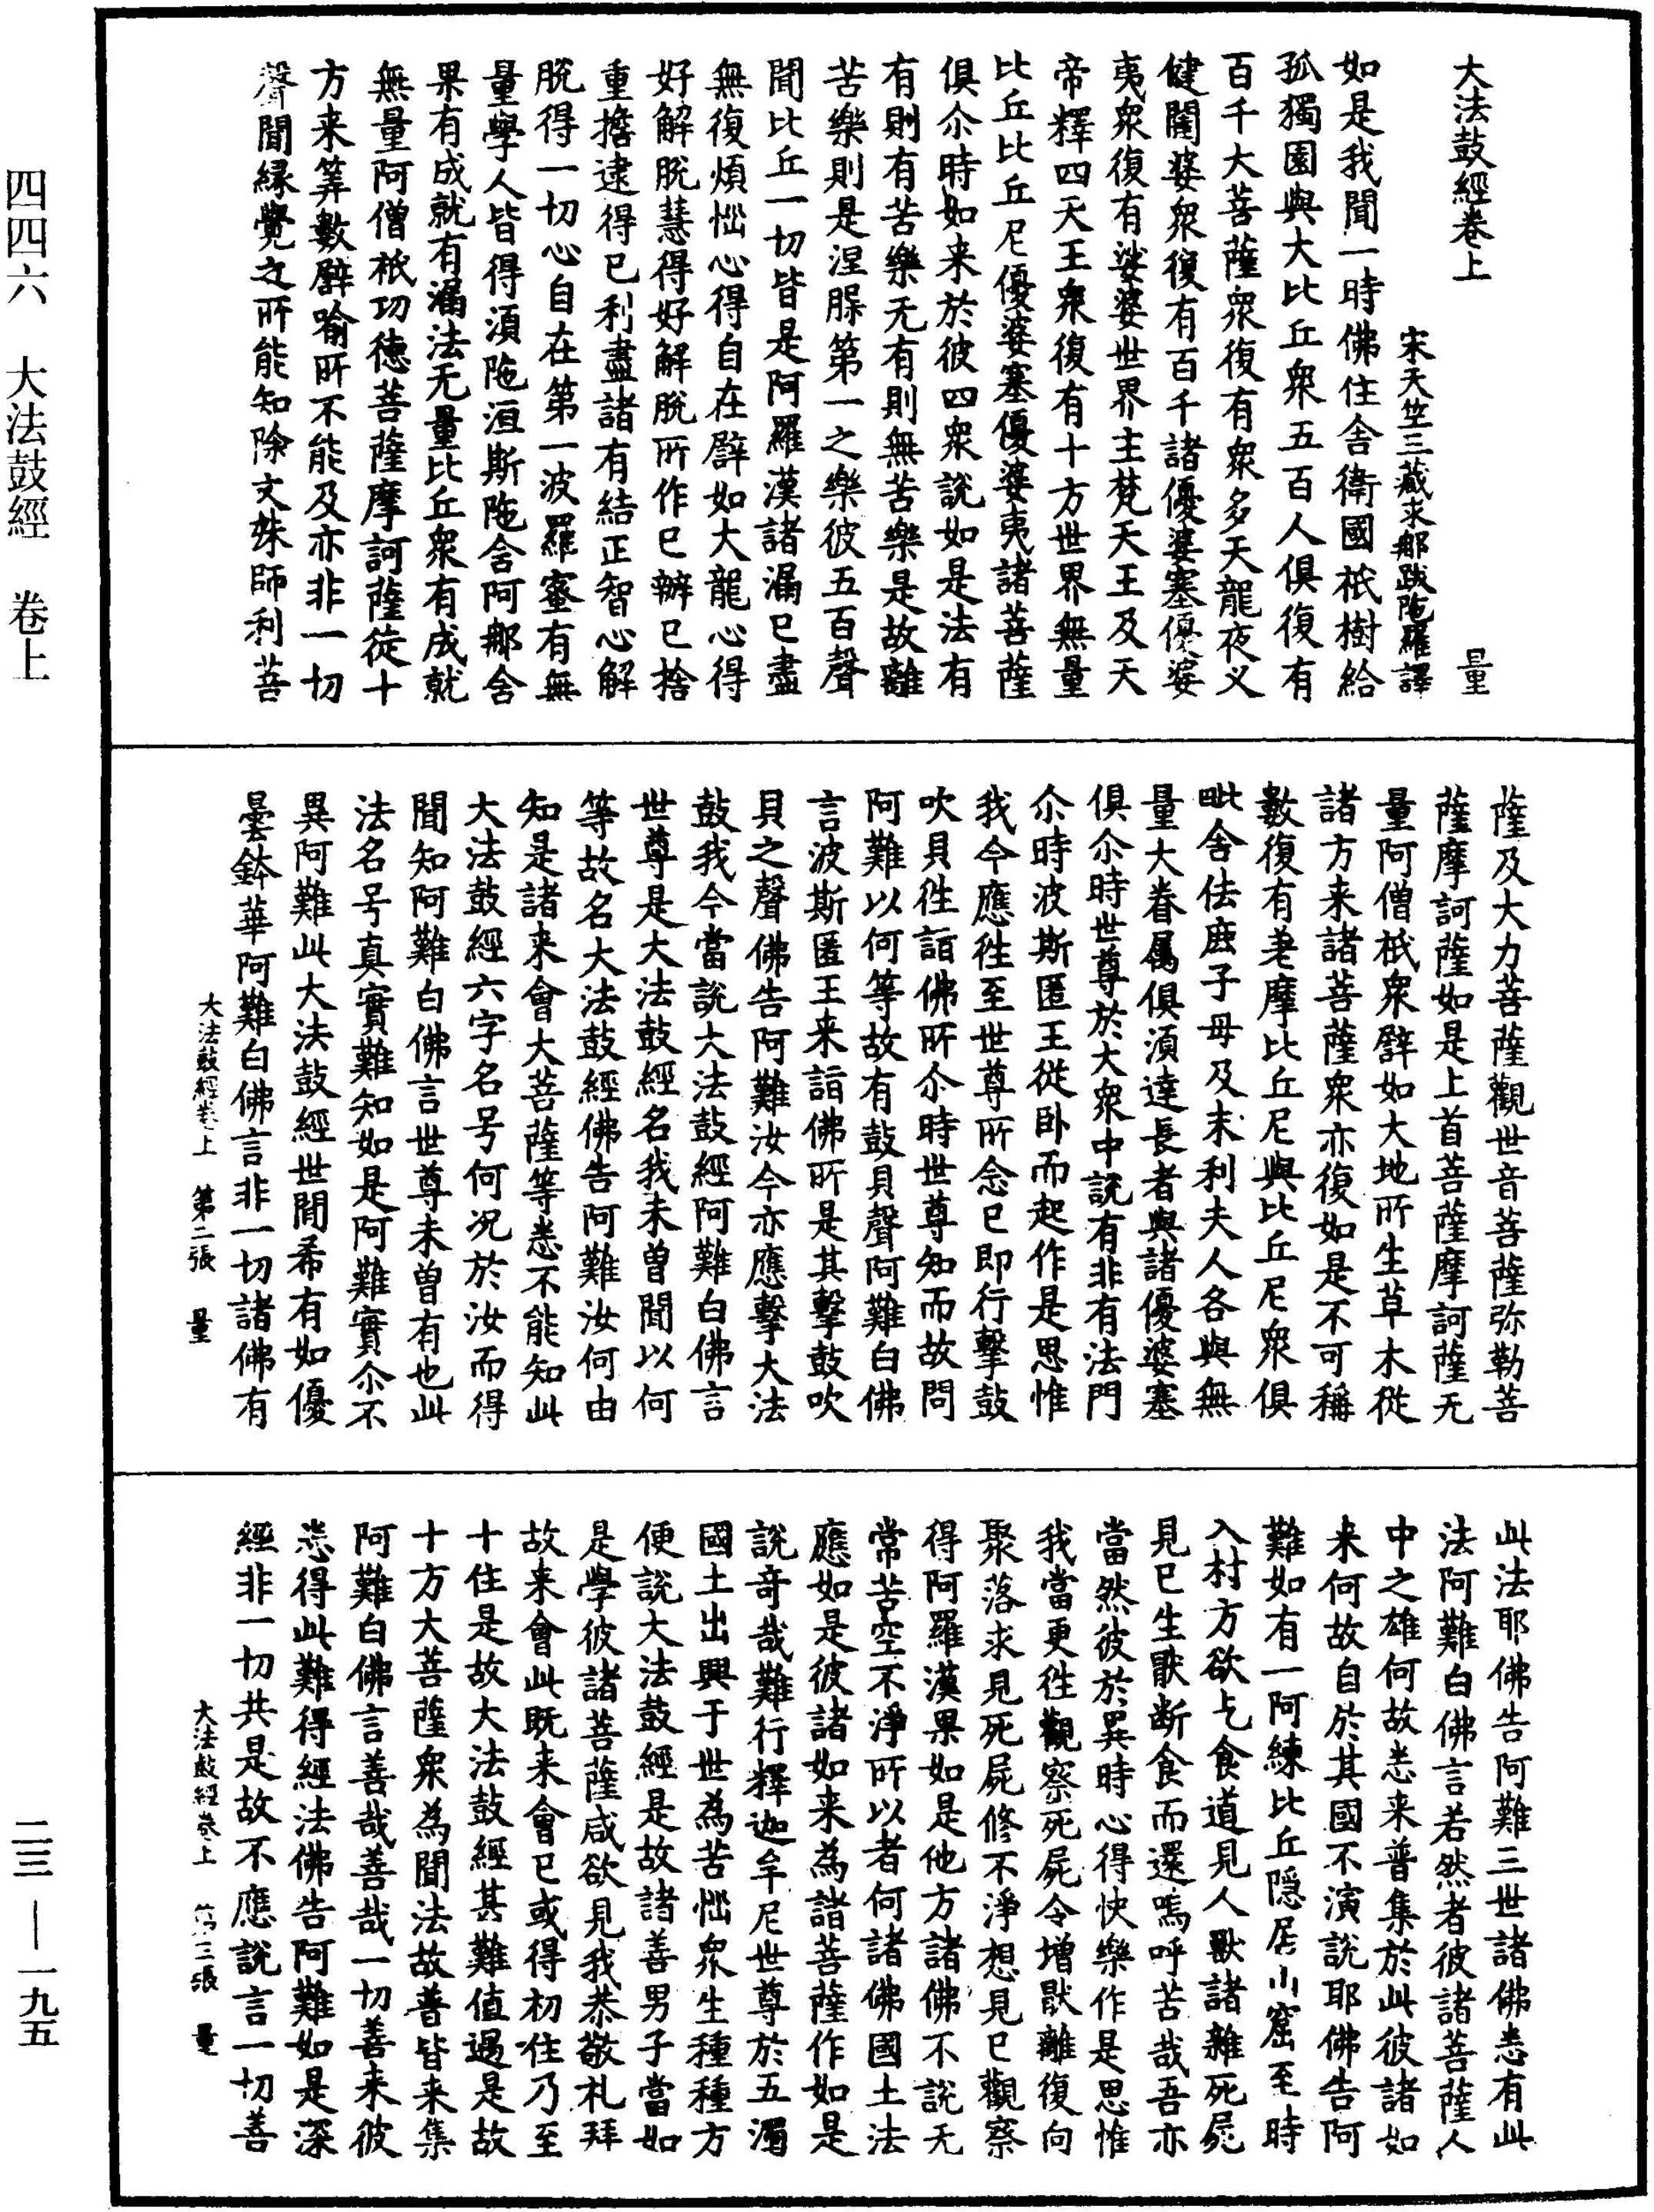 大法鼓經卷上
量
宋天竺三藏求那跋陁羅譯
如是我聞一時佛住舍衛國祇樹給
孤獨園與大比丘衆五百人俱復有
百千大菩薩衆復有衆多天龍夜义
健闥婆衆復有百千諸優婆塞優婆
夷衆復有娑婆世界主梵天王及天
帝釋四天王衆復有十方世界無量
比丘比丘尼優婆塞優婆夷諸菩薩
俱尒時如来於彼四衆說如是法有
有則有苦樂无有則無苦樂是故離
苦樂則是涅槃第一之樂彼五百聲
聞比丘一切皆是阿羅漢諸漏已盡
無復煩惱心得自在譬如大龍心得
好解脫慧得好解脫所作已辦已捨
重擔逮得已利盡諸有結正智心解
脫得一切心自在第一波羅蜜有無
量學人皆得湏陁洹斯陁含阿那含
果有成就有漏法无量比丘衆有成就
無量阿僧祇功德菩薩摩訶薩從十
方来筭數譬喻所不能及亦非一切
聲聞緣覺之所能知除文殊師利菩
薩及大力菩薩觀世音菩薩弥勒菩
薩摩訶薩如是上首菩薩摩訶薩无
量阿僧祇衆譬如大地所生草木從
諸方来諸菩薩衆亦復如是不可稱
數復有差摩比丘尼與比丘尼衆俱
毗舍佉鹿子母及末利夫人各與無
量大眷属俱湏達長者與諸優婆塞
俱尒時世尊於大衆中說有非有法門
尒時波斯匿王從卧而起作是思惟
我今應往至世尊所念已即行擊鼓
吹貝往詣佛所尒時世尊知而故問
阿難以何等故有鼓貝聲阿難白佛
言波斯匿王来詣佛所是其擊鼓吹
貝之聲佛告阿難汝今亦應擊大法
鼓我今當說大法鼓經阿難白佛言
世尊是大法鼓經名我未曾聞以何
等故名大法鼓經佛告阿難汝何由
知是諸来會大菩薩等悉不能知此
大法鼓經六字名号何況於汝而得
聞知阿難白佛言世尊未曾有也此
法名号真實難知如是阿難實尒不
異阿難此大法鼓經世間希有如優
曇鉢華阿難白佛言非一切諸佛有
大法鼓經卷上　第二張　量
此法耶佛告阿難三世諸佛悉有此
法阿難白佛言若然者彼諸菩薩人
中之雄何故悉来普集於此彼諸如
来何故自於其國不演說耶佛告阿
難如有一阿練比丘隠居山窟至時
入村方欲乞食道見人獸諸雜死屍
見已生猒断食而還嗚呼苦哉吾亦
當然彼於異時心得快樂作是思惟
我當更往觀察死屍令增猒離復向
聚落求見死屍修不淨想見已觀察
得阿羅漢果如是他方諸佛不說无
常苦空不淨所以者何諸佛國土法
應如是彼諸如来為諸菩薩作如是
說奇哉難行釋迦牟尼世尊於五濁
國土出興于世為苦惱衆生種種方
便說大法鼓經是故諸善男子當如
是學彼諸菩薩咸欲見我恭敬礼拜
故来會此既来會已或得初住乃至
十住是故大法鼓經甚難值遇是故
十方大菩薩衆為聞法故普皆来集
阿難白佛言善哉善哉一切善来彼
悉得此難得經法佛告阿難如是深
經非一切共是故不應說言一切善
大法鼓經卷上　第三張　量
四四六　大法鼓經　卷上
二三—一九五